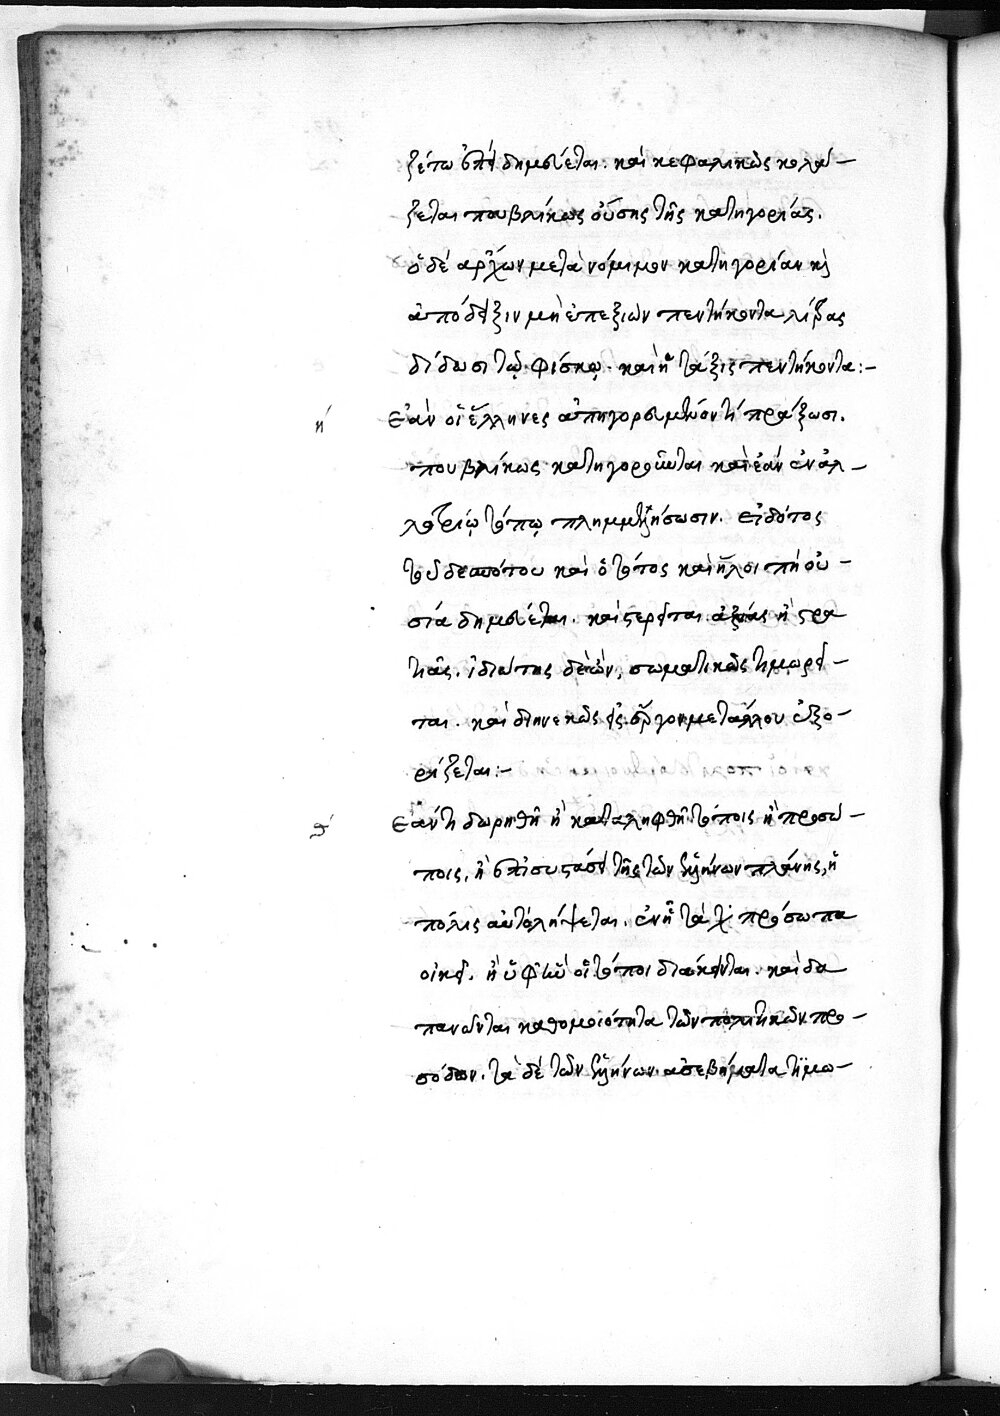 ξέτω ἐπεὶ δημεύεται. καὶ κεφαλικῶς κολά-
ζεται πουβλίκως οὔσης τῆς κατηγορίας.
ὁ δὲ ἄρχων μετὰ νόμιμον κατηγορίαν καὶ
ἀπόδειξιν μὴ ἐπεξιὼν πεντήκοντα λίτρας
δίδωσι τῷ φίσκῳ. καὶ ἡ τάξις πεντήκοντα:-
η΄ Ἐὰν οἱ ἕλληνες ἀπηγορευμένον τι πράξωσι.
πουβλίκως κατηγοροῦνται καὶ ἐὰν ἐν ἀλ-
λοτρίῳ τόπῳ πλημμελήσωσιν. εἰδότος
τοῦ δεσπότου καὶ ὁ τόπος καὶ ἡ λοιπὴ οὐ-
σία δημεύεται. καὶ στερεῖται ἀξίας ἢ στρα
τείας. ἰδιώτης δὲ ὢν, σωματικῶς τιμωρεῖ-
ται. καὶ διηνεκῶς εἰς ἔργον μετάλλου ἐξο-
ρίζεται:-
θ΄ Ἐάν τι δωρηθῇ ἢ καταλειφθῇ τόποις ἢ προσώ-
ποις, ἢ ἐπὶ συστάσει τῆς τῶν ἑλλήνων πλάνης, ἡ
πόλις αὐτὸ λήψεται. ἐν ᾗ τὰ πρόσωπα
οἰκεῖ. ἢ ὑφ' ἣν οἱ τόποι διάκεινται. καὶ δα
πανῶνται καθ' ὁμοιότητα τῶν πολιτικῶν προ-
σόδων. τὰ δὲ τῶν ἑλλήνων ἀσεβήματα τιμω-